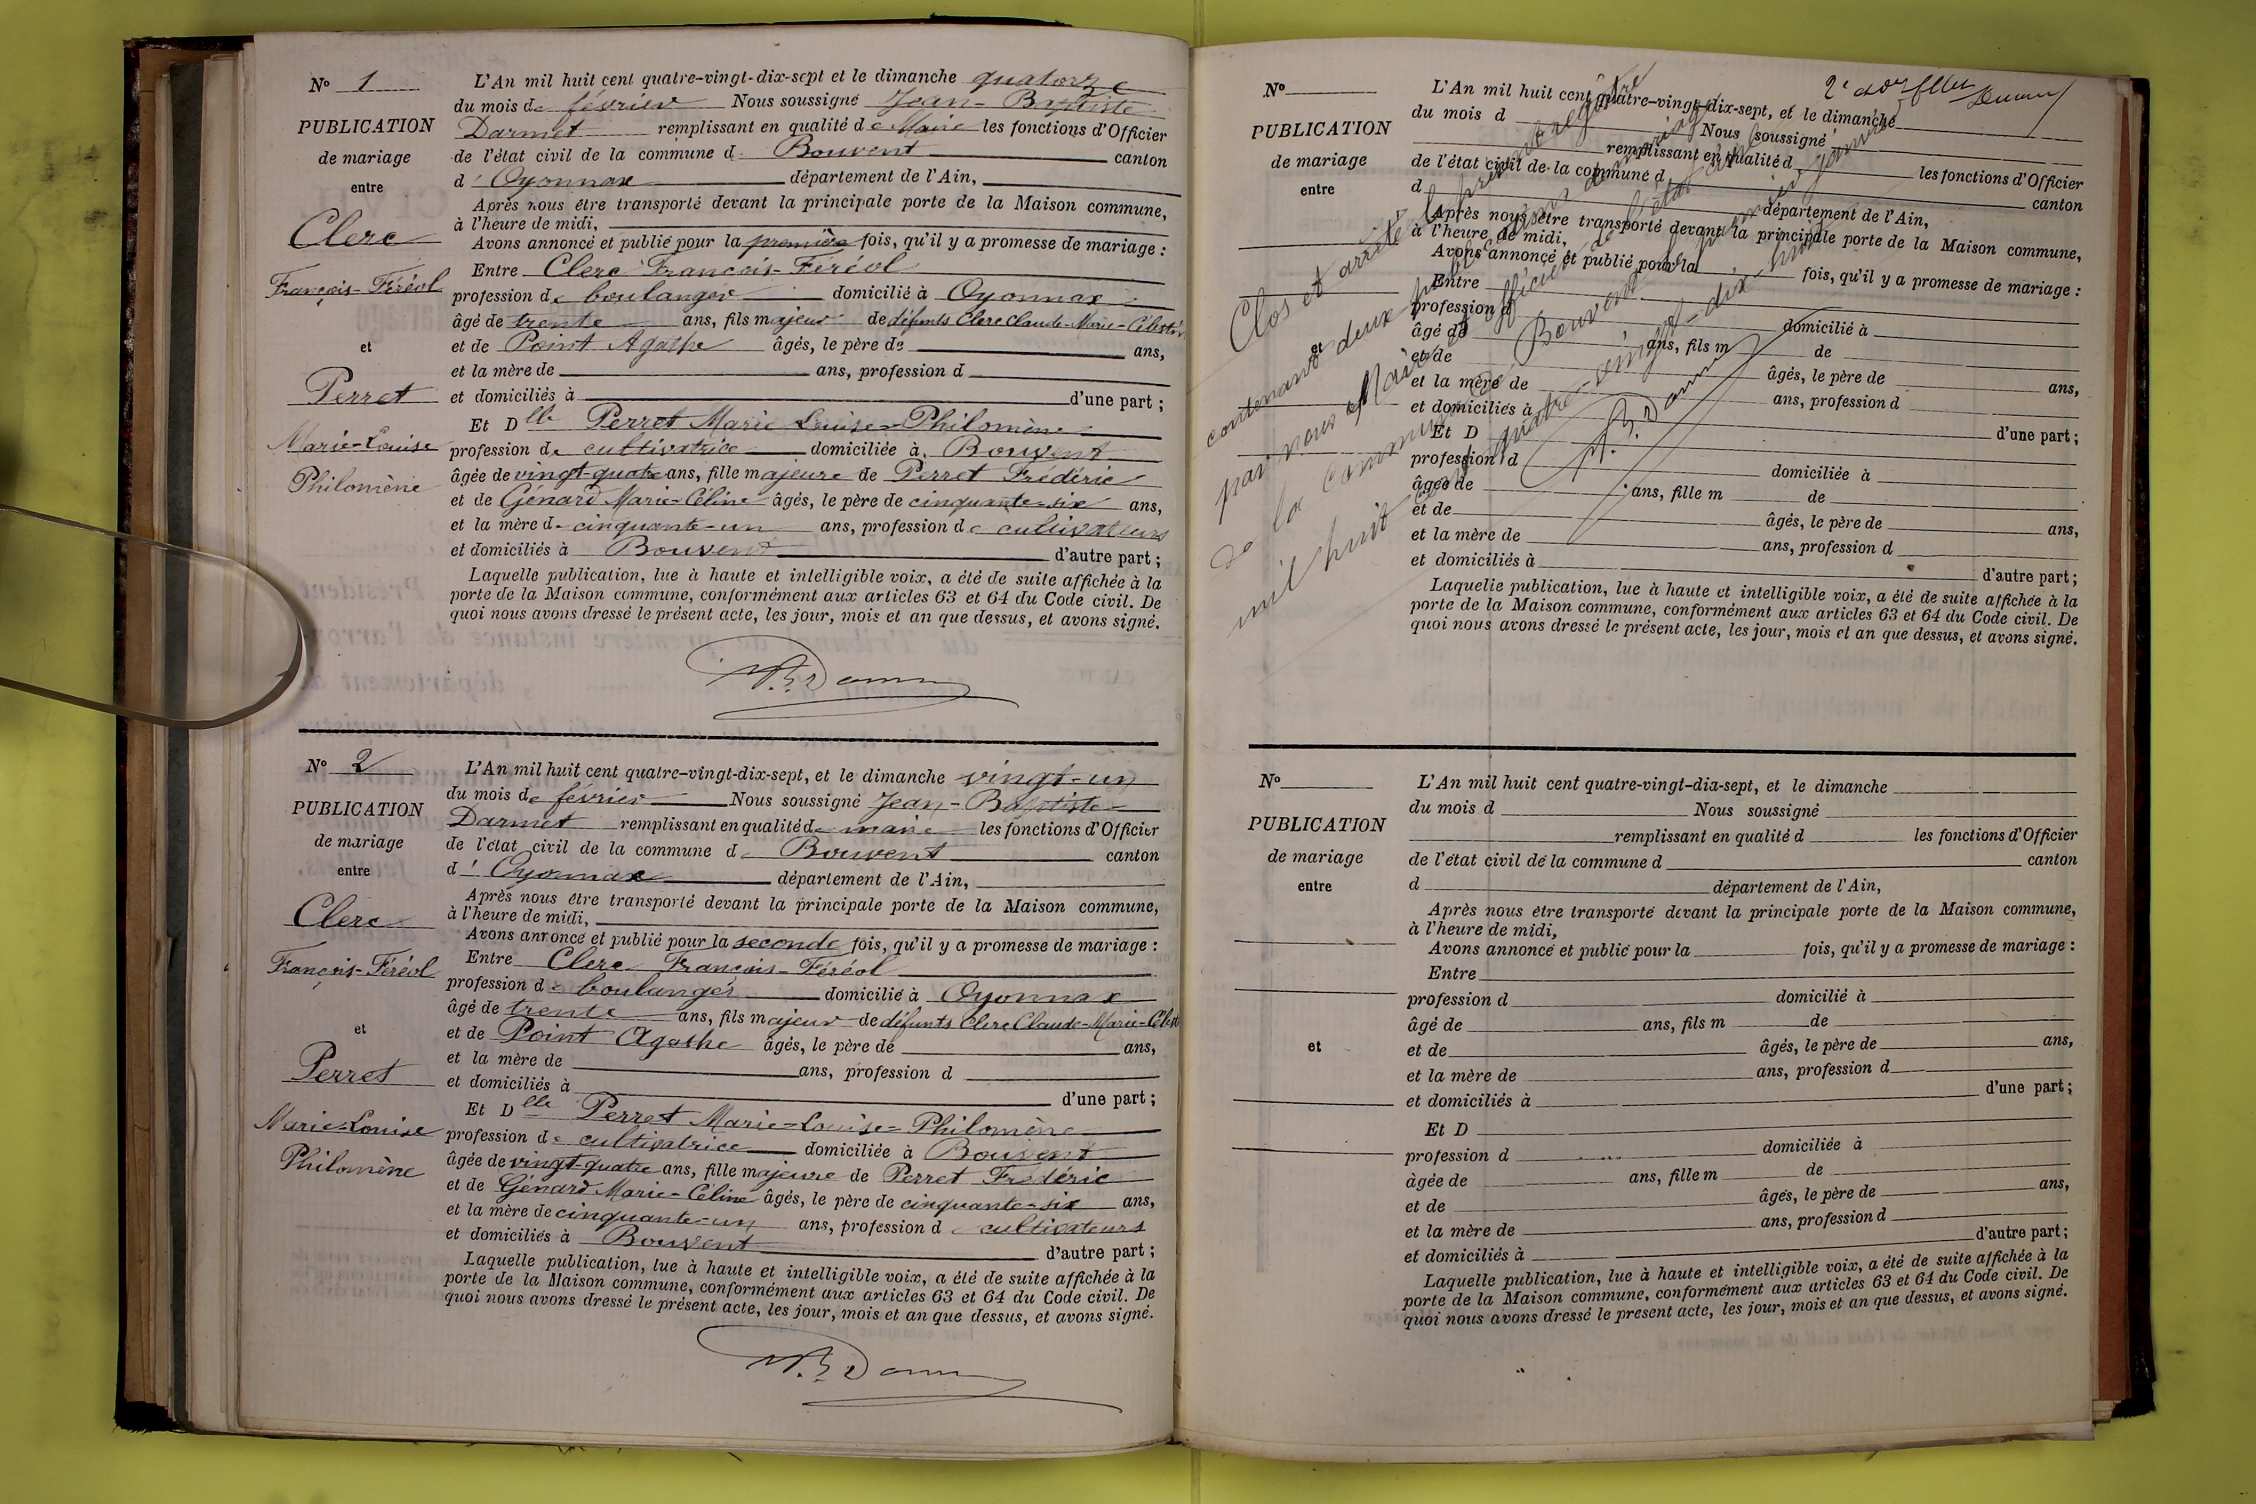 N° 1
PUBLICATION
de mariage
entre
Clerc
François-Féréol
et
Perret
Marie-Louise
Philomène
L'An mil huit cent quatre-vingt-dix-sept et le dimanche quatorze
du mois de février Nous soussigné Jean-Baptiste
Darmet remplissant en qualité de Maire les fonctions d'Officier
de l'état civil de la commune d Bouvent canton
d' Oyonnax département de l'Ain,
Après nous être transporté devant la principale porte de la Maison commune,
à l'heure de midi,
Avons annoncé et publié pour la première fois, qu'il y a promesse de mariage :
Entre Clerc François-Féréol
profession de boulanger domicilié à Oyonnax
âgé de trente ans, fils majeur de défunts Clerc Claude-Marie-Célestin
et de Point Agathe âgés, le père de ans,
et la mère de ans, profession d
et domiciliés à d'une part ;
Et Dlle Perret Marie Louise-Philomène
profession de cultivatrice domiciliée à Bouvent
âgée de vingt-quatre ans, fille majeure de Perret Frédéric
et de Génard Marie-Céline âgés, le père de cinquante-six ans,
et la mère de cinquante-un ans, profession de cultivateurs
et domiciliés à Bouvent d'autre part ;
Laquelle publication, lue à haute et intelligible voix, a été de suite affichée à la
porte de la Maison commune, conformément aux articles 63 et 64 du Code civil. De
quoi nous avons dressé le présent acte, les jour, mois et an que dessus, et avons signé.
N° 2
PUBLICATION
de mariage
entre
Clerc
François-Féréol
et
Perret
Marie-Louise
Philomène
L'An mil huit cent quatre-vingt-dix-sept, et le dimanche vingt-un
du mois de février Nous soussigné Jean-Baptiste
Darmet remplissant en qualité de maire les fonctions d'Officier
de l'état civil de la commune d Bouvent canton
d' Oyonnax département de l'Ain,
Après nous être transporté devant la principale porte de la Maison commune,
à l'heure de midi,
Avons annoncé et publié pour la seconde fois, qu'il y a promesse de mariage :
Entre Clerc François-Féréol
profession de boulanger domicilié à Oyonnax
âgé de trente ans, fils majeur de défunts Clerc Claude-Marie-Célest
et de Point Agathe âgés, le père de ans,
et la mère de ans, profession d
et domiciliés à d'une part ;
Et Dlle Perret Marie-Louise-Philomène
profession de cultivatrice domiciliée à Bouvent
âgée de vingt-quatre ans, fille majeure de Perret Frédéric
et de Génard Marie-Céline âgés, le père de cinquante-six ans,
et la mère de cinquante-un ans, profession d cultivateurs
et domiciliés à Bouvent d'autre part ;
Laquelle publication, lue à haute et intelligible voix, a été de suite affichée à la
porte de la Maison commune, conformément aux articles 63 et 64 du Code civil. De
quoi nous avons dressé le présent acte, les jour, mois et an que dessus, et avons signé.
N°
PUBLICATION
de mariage
entre
et
L'An mil huit cent quatre-vingt-dix-sept, et le dimanche
du mois d Nous soussigné
remplissant en qualité d les fonctions d'Officier
de l'état civil de la commune d canton
d département de l'Ain,
Après nous être transporté devant la principale porte de la Maison commune,
à l'heure de midi,
Avons annoncé et publié pour la fois, qu'il y a promesse de mariage :
Entre
profession d domicilié à
âgé de ans, fils m de
et de âgés, le père de ans,
et la mère de ans, profession d
et domiciliés à d'une part ;
Et D
profession d domiciliée à
âgée de ans, fille m de
et de âgés, le père de ans,
et la mère de ans, profession d
et domiciliés à d'autre part ;
Laquelle publication, lue à haute et intelligible voix, a été de suite affichée à la
porte de la Maison commune, conformément aux articles 63 et 64 du Code civil. De
quoi nous avons dressé le présent acte, les jour, mois et an que dessus, et avons signé.
Clos et arrêté le présent registre
contenant deux publications de mariage
par nous Maire et officier de l'état civil
de la commune de Bouvent le premier janvier
mil huit cent quatre-vingt-dix-huit
N°
PUBLICATION
de mariage
entre
et
L'An mil huit cent quatre-vingt-dix-sept, et le dimanche
du mois d Nous soussigné
remplissant en qualité d les fonctions d'Officier
de l'état civil de la commune d canton
d département de l'Ain,
Après nous être transporté devant la principale porte de la Maison commune,
à l'heure de midi,
Avons annoncé et publié pour la fois, qu'il y a promesse de mariage :
Entre
profession d domicilié à
âgé de ans, fils m de
et de âgés, le père de ans,
et la mère de ans, profession d
et domiciliés à d'une part ;
Et D
profession d domiciliée à
âgée de ans, fille m de
et de âgés, le père de ans,
et la mère de ans, profession d
et domiciliés à d'autre part ;
Laquelle publication, lue à haute et intelligible voix, a été de suite affichée à la
porte de la Maison commune, conformément aux articles 63 et 64 du Code civil. De
quoi nous avons dressé le présent acte, les jour, mois et an que dessus, et avons signé.